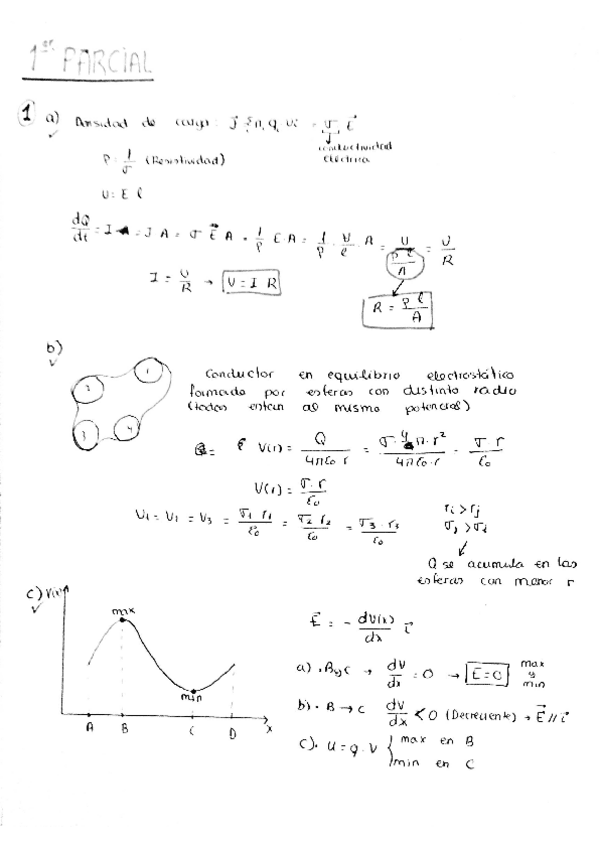 1er PARCIAL
1 a) Densidad de carga: j = n q v = σ E
conductividad
eléctrica
ρ = 1/σ (Resistividad)
U = E l
dQ/dt = I = J A = σ E A = 1/ρ · E · A = 1/ρ · U/l · A = U/(ρ l/A) = U/R
I = U/R → U = I R
R = ρ l/A
b)
1
2
3
4
Conductor en equilibrio electrostático
formado por esferas con distinto radio
(todos estan al mismo potencial)
V(r) = Q/(4πε0 r) = σ · 4π · r²/(4πε0 · r) = σ r/ε0
V(r) = σ · r/ε0
V1 = V2 = V3 = σ1 · r1/ε0 = σ2 · r2/ε0 = σ3 · r3/ε0
ri > rj
σj > σi
Q se acumula en las
esferas con menor r
c) V(x)
max
min
A B C D x
E = - dV(x)/dx i
a) · B y C → dV/dx = 0 → E = 0 max y min
b) · B → C dV/dx < 0 (Decreciente) → E // i
c) · U = q · V { max en B
min en C